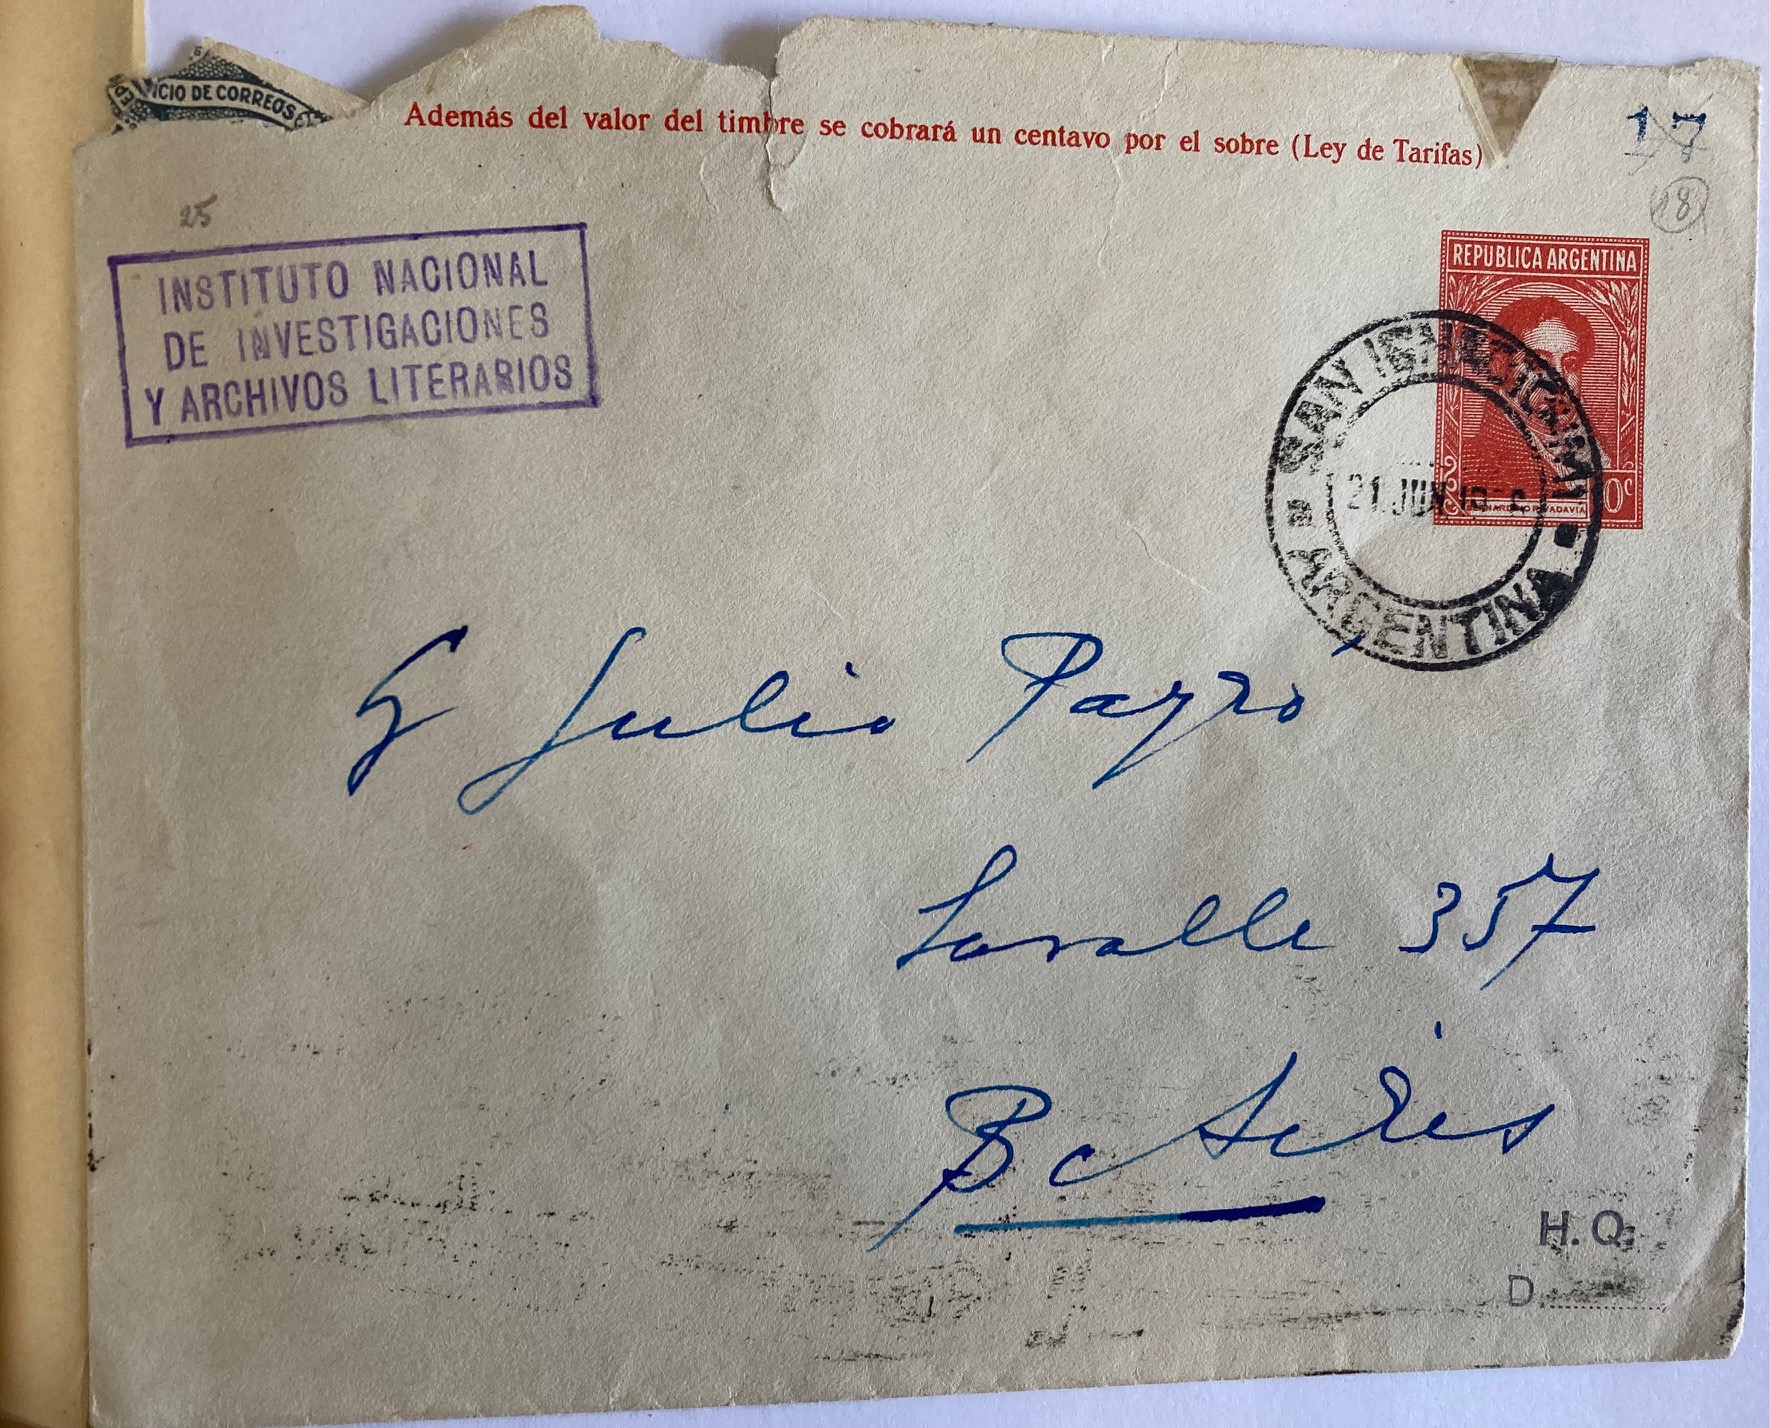 CIO DE CORREOS
Además del valor del timbre se cobrará un centavo por el sobre (Ley de Tarifas)
17
18
25
INSTITUTO NACIONAL
DE INVESTIGACIONES
Y ARCHIVOS LITERARIOS
REPUBLICA ARGENTINA
SAN IGNACIO (M)
21 JUN
ARGENTINA
0c
BERNARDINO RIVADAVIA
S Julio Payró
Lavalle 357
Bs Aires
H. Q.
D.